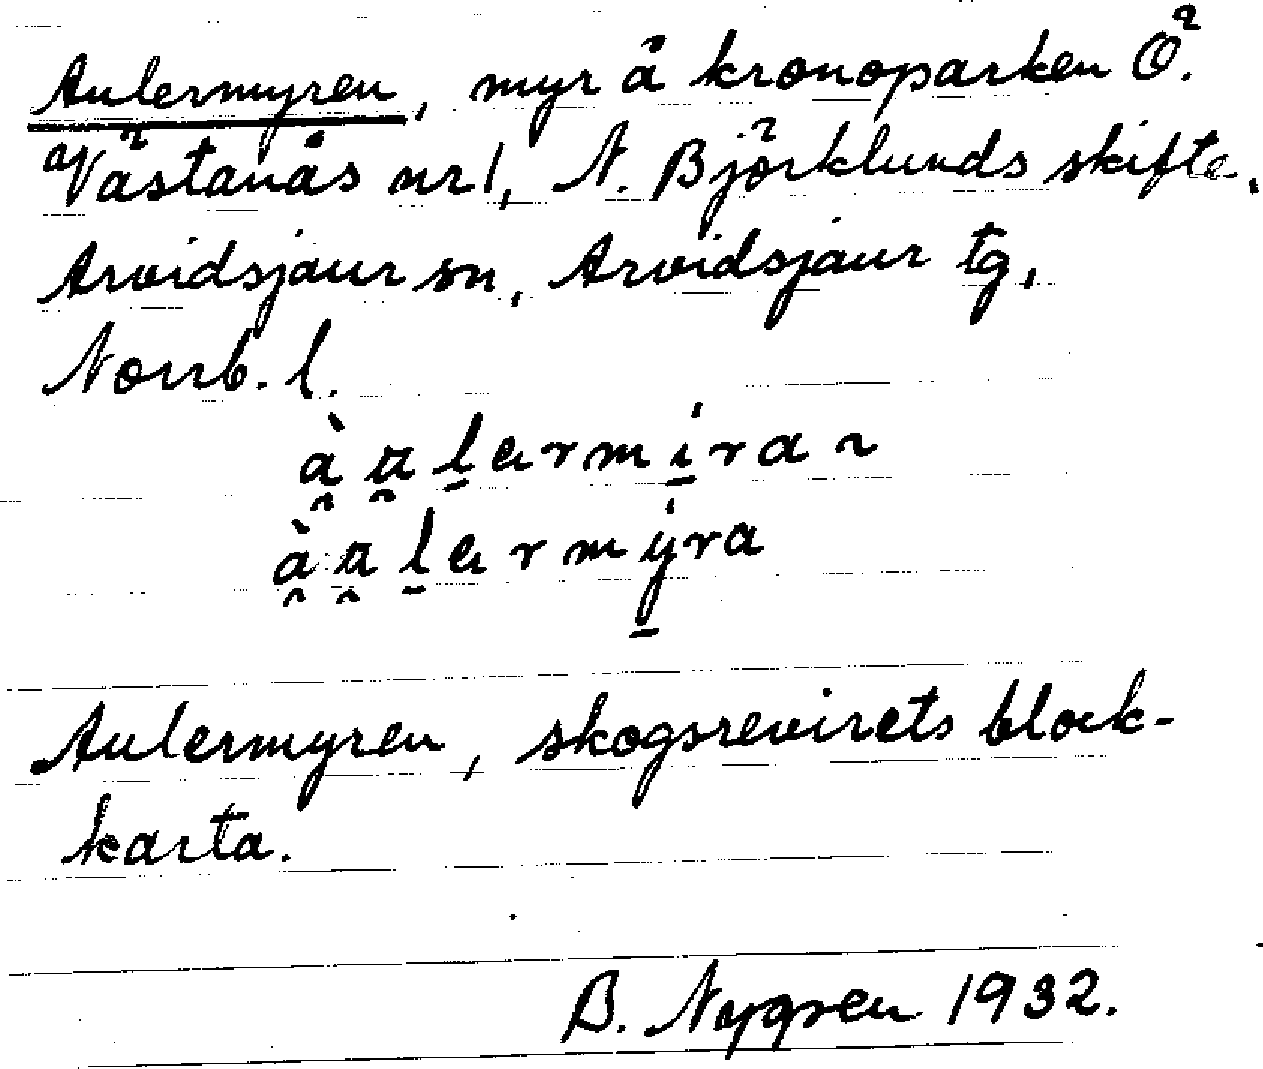 Aulermyren, myr å kronoparken Ö.
Västanås nr 1, N. Björklunds skifte,
Arvidsjaur sn, Arvidsjaur tg,
Norrb. l.
Aulermyren, skogsrevirets block-
karta.
B. Nygren 1932.